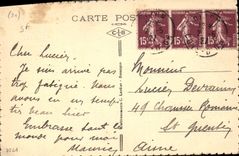 CARTE POSTALE
Cher Lucien
Je suis arrivé pas
trop fatigué. Nous
avons eu un temps
très beau hier
Embrasse tout le
monde pour moi
Maurice
Monsieur
Lucien
49 Chaussée Romaine
St Quentin
Aisne
15c 15c 15c